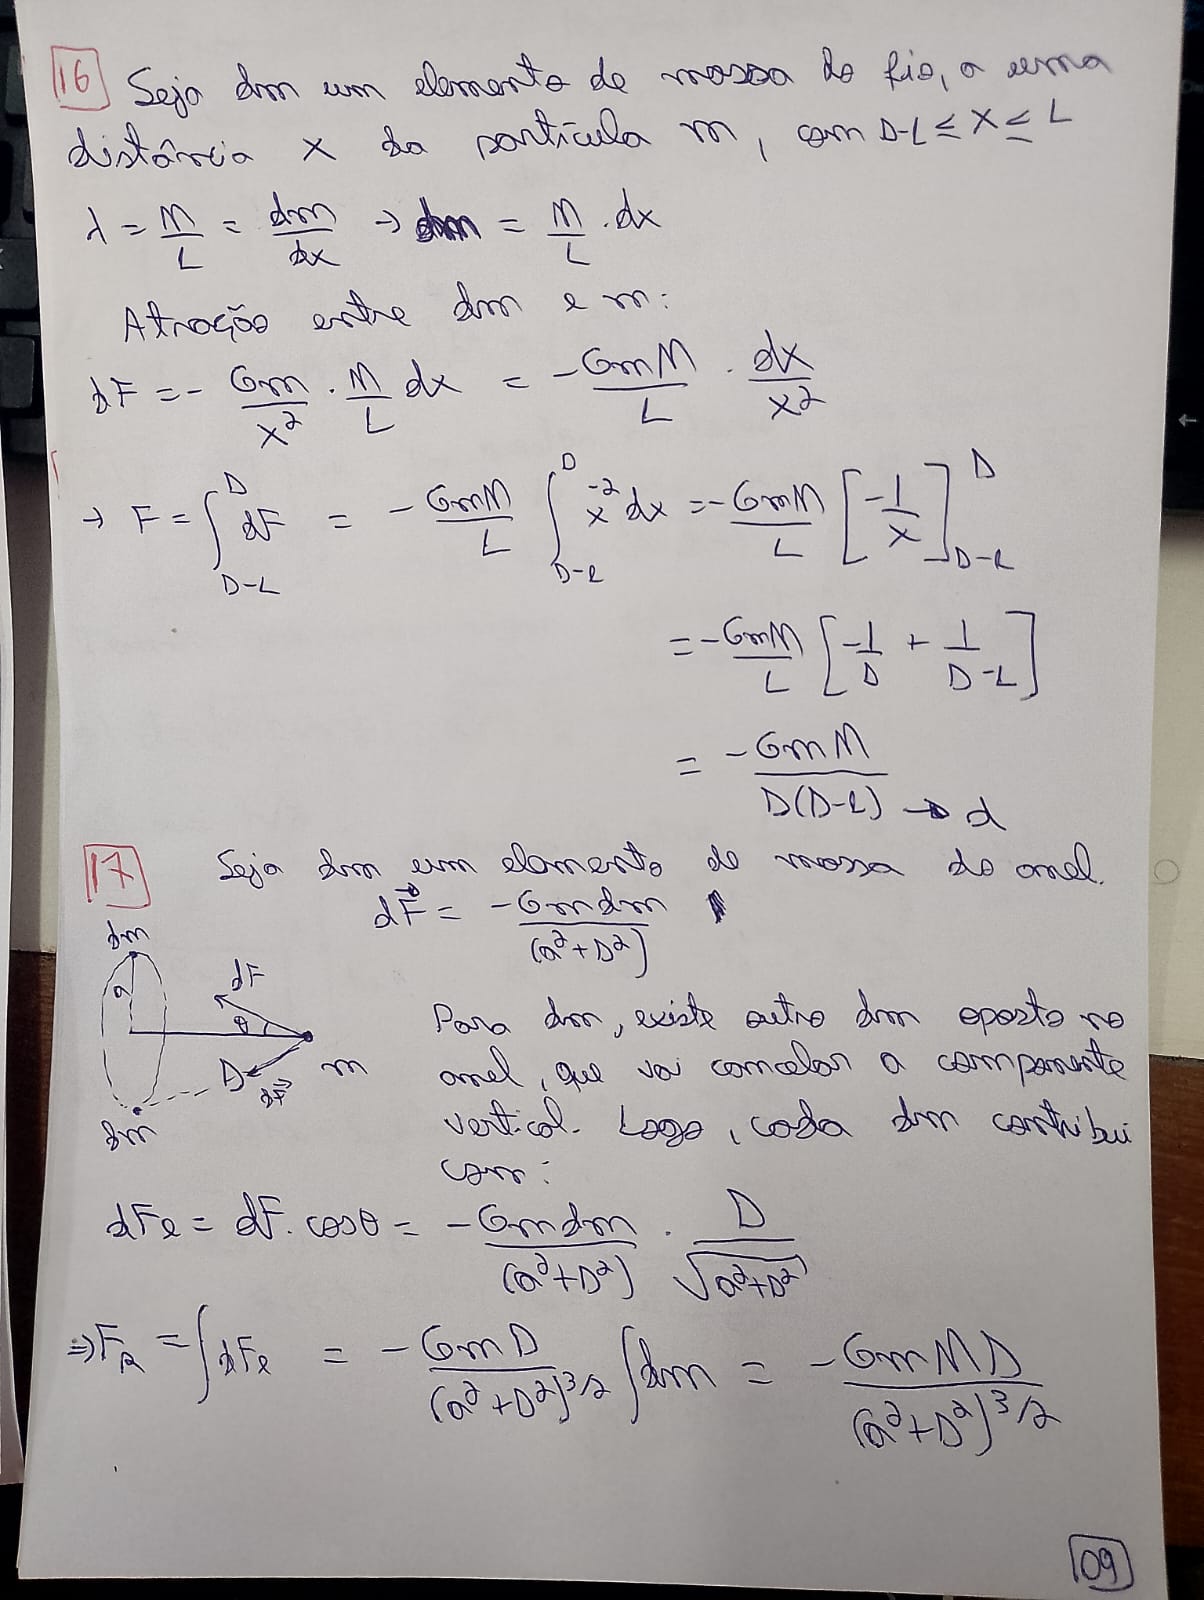 16 Seja dm um elemento de massa do fio, a uma
distância x da partícula m, com D-L ≤ X ≤ L
λ = M/L = dm/dx → dm = M/L . dx
Atração entre dm e m:
dF = - Gm/x² . M/L dx = - GmM/L . dx/x²
→ F = ∫_{D-L}^{D} dF = - GmM/L ∫_{D-L}^{D} x⁻² dx = - GmM/L [-1/x]_{D-L}^{D}
= - GmM/L [-1/D + 1/(D-L)]
= - GmM/(D(D-L)) → d
17 Seja dm um elemento de massa do anel.
dF⃗ = - Gmdm/(a²+D²)
dm
a
dF
θ
D
dF⃗
m
dm
Para dm, existe outro dm oposto no
anel, que vai cancelar a componente
vertical. Logo, cada dm contribui
com:
dFR = dF. cosθ = - Gmdm/(a²+D²) . D/√(a²+D²)
⇒ FR = ∫dFR = - GmD/(a²+D²)^{3/2} ∫dm = - GmMD/(a²+D²)^{3/2}
09